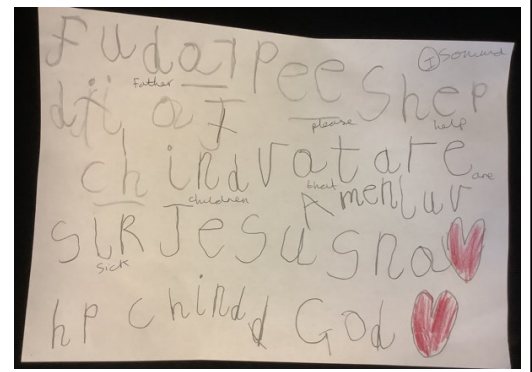 Fudat Pee Shep
Father please help
chindvatare
children that are
Amen luv
SiR Jesus na
sick
hp chindd God